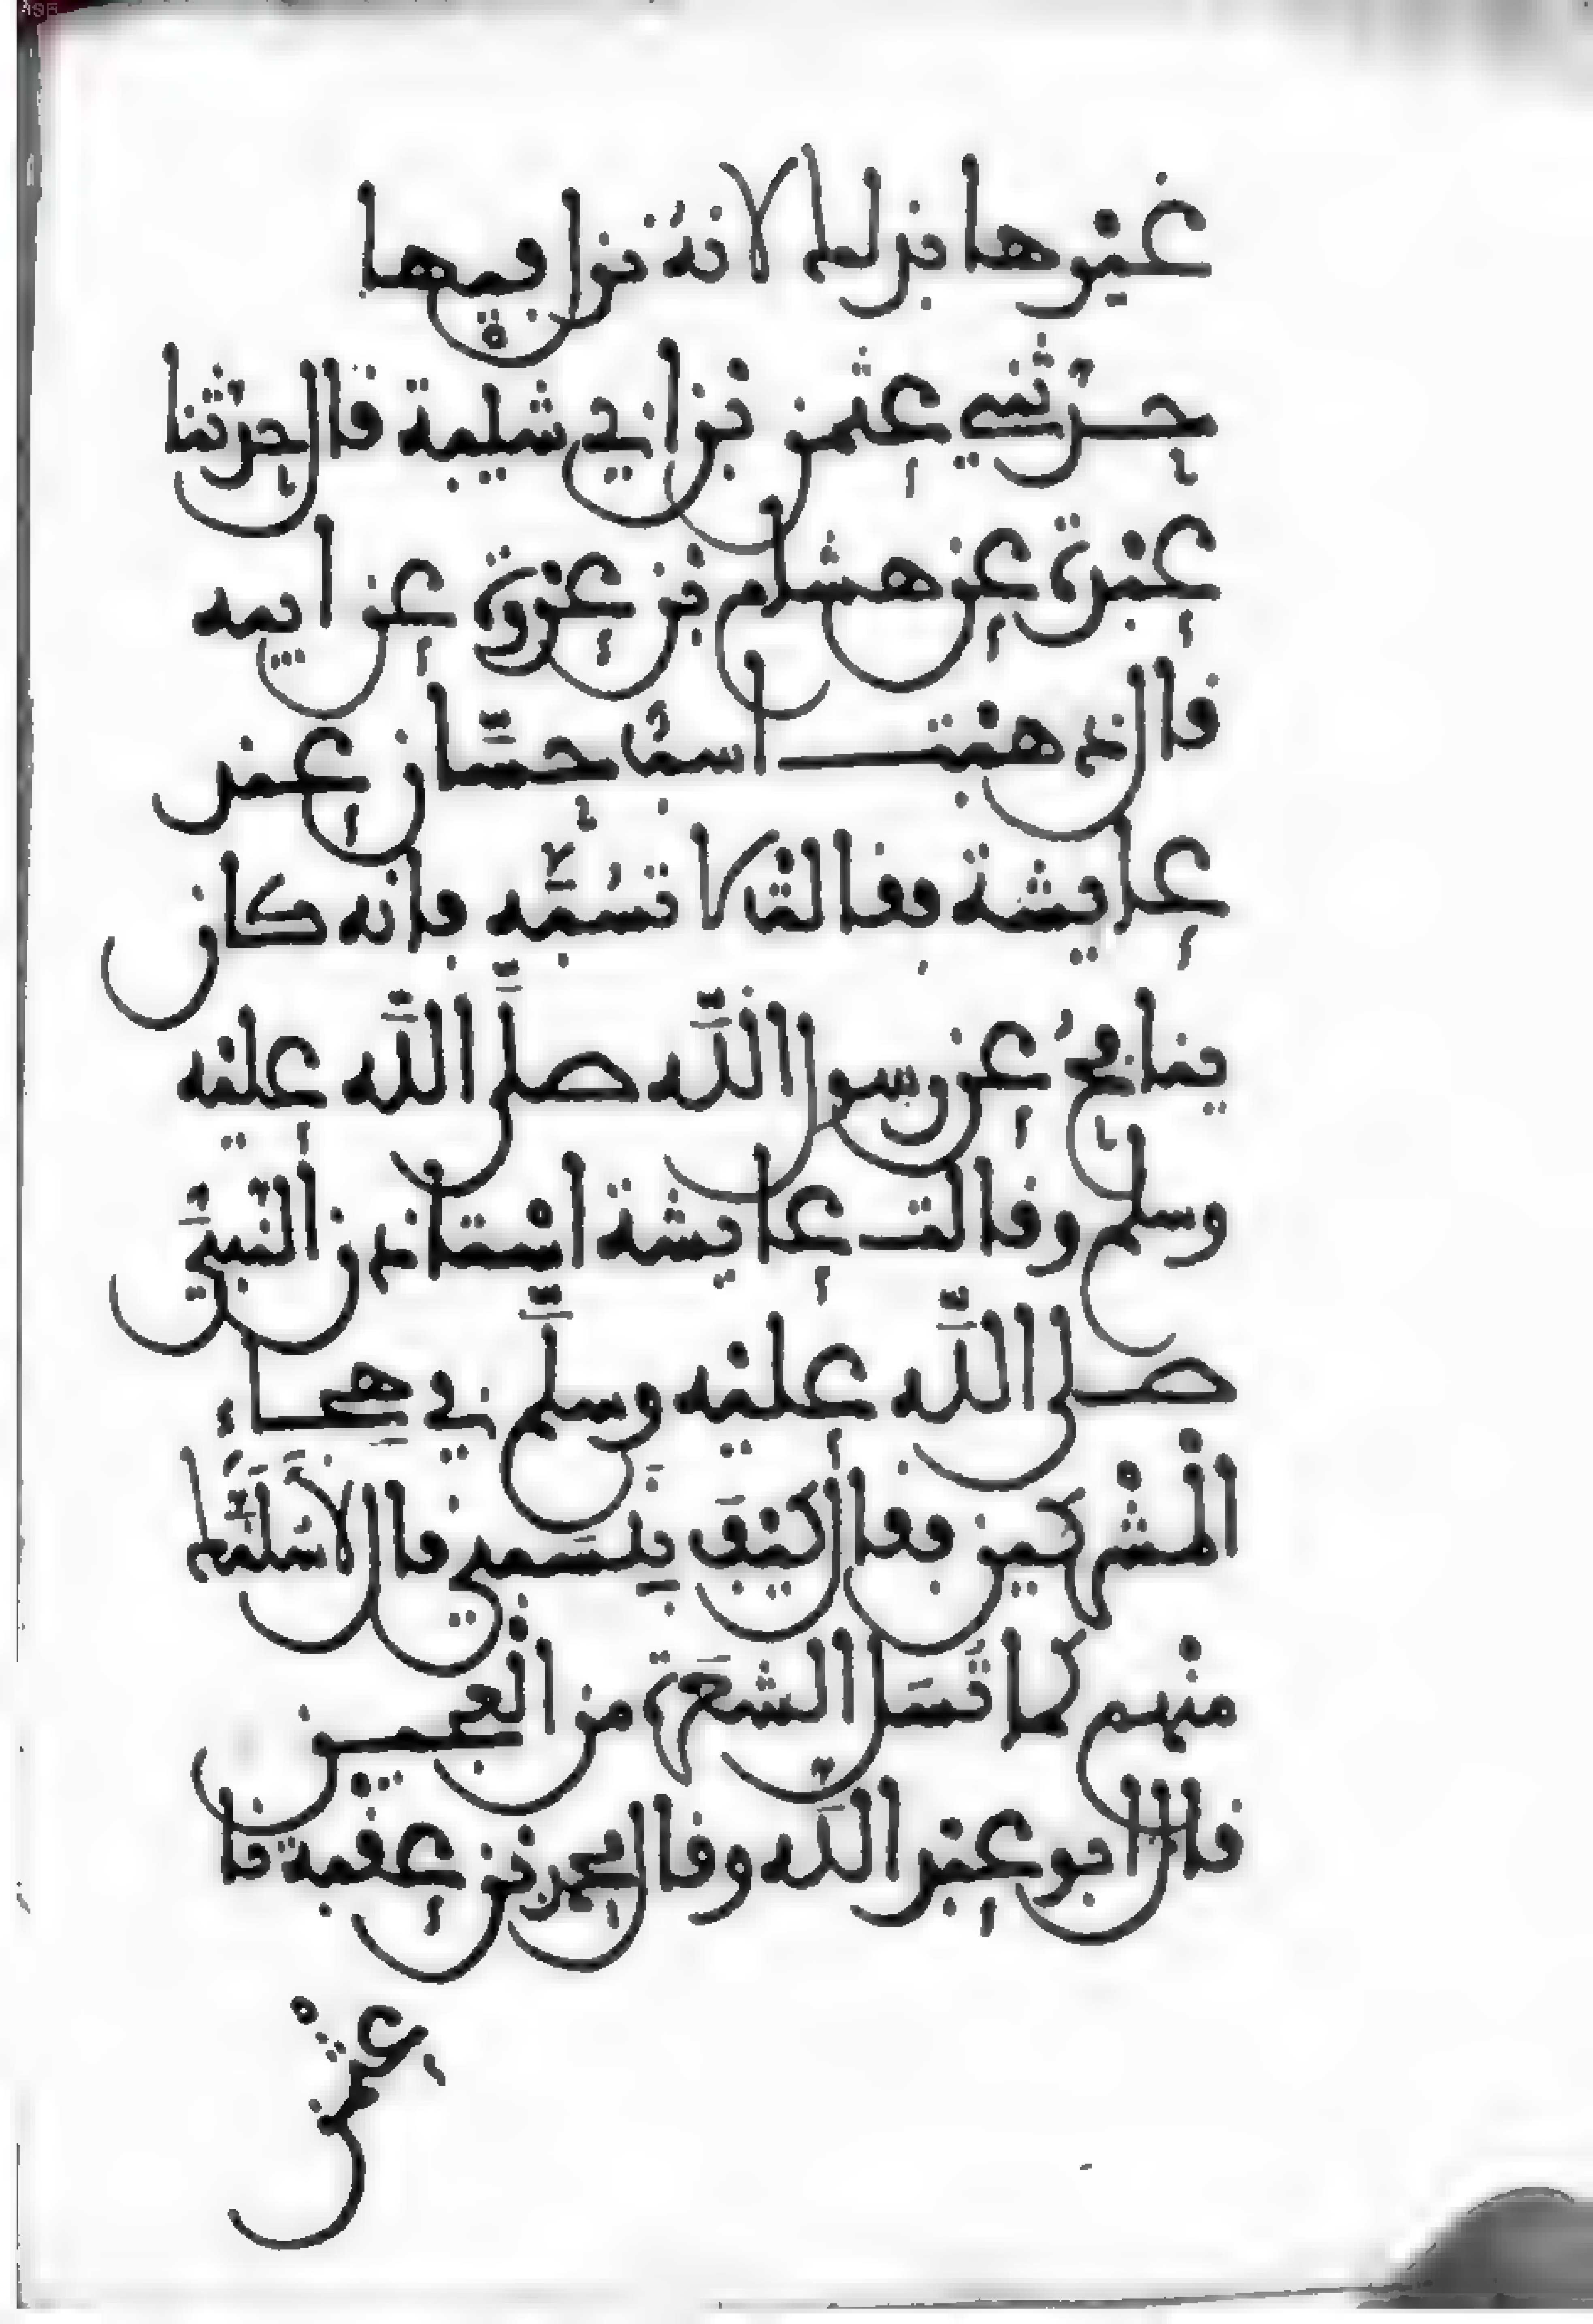 غيرها نزلها لانه نزل فيها
حدثني عثمن بن ابي شيبة قال حدثنا
عبدة عن هشام بن عروة عن ابيه
قال ذهبت اسب حسان عند
عايشة فقالت لا تسبه فإنه كان
ينافح عن رسول الله صلى الله عليه
وسلم وقالت عايشة استاذن النبي
صلى الله عليه وسلم في هجاء
المشركين فقال كيف بنسبي قال لأسلنك
منهم كما تسل الشعرة من العجين
قال ابو عبد الله وقال محمد بن عقبة نا
عثمن